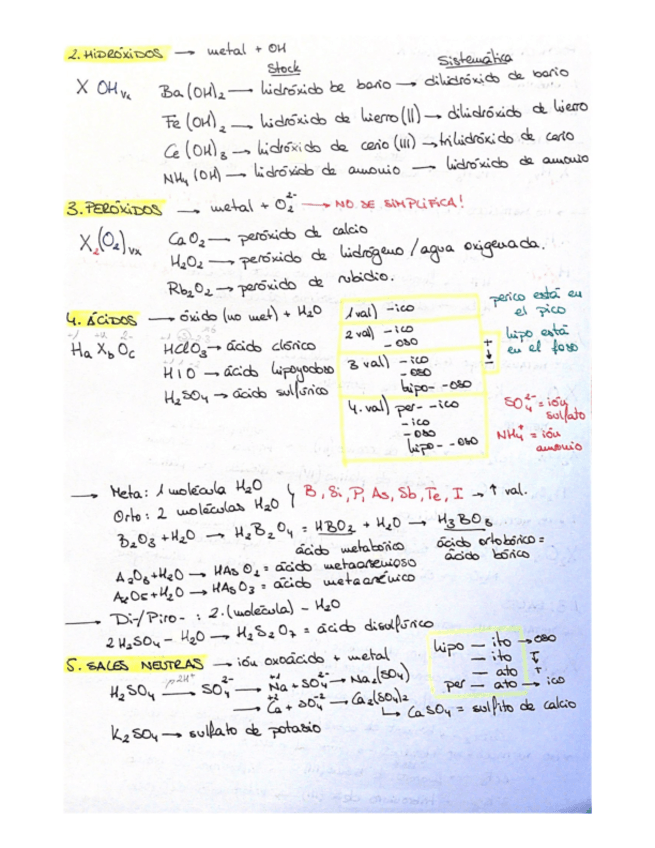 2. HIDRÓXIDOS → metal + OH
Stock Sistemática
X OHvx Ba(OH)2 → hidróxido be bario → dihidróxido de bario
Fe(OH)2 → hidróxido de hierro (II) → dihidróxido de hierro
Ce(OH)3 → hidróxido de cerio (III) → trihidróxido de cerio
NH4(OH) → hidróxido de amonio → hidróxido de amonio
3. PERÓXIDOS → metal + O2 2- → NO SE SIMPLIFICA!
X2(O2)vx CaO2 → peróxido de calcio
H2O2 → peróxido de hidrógeno / agua oxigenada.
Rb2O2 → peróxido de rubidio.
4. ÁCIDOS → óxido (no met) + H2O
+1 +x 2-
Ha Xb Oc HClO3 → ácido clórico
HIO → ácido hipoyodoso
H2SO4 → ácido sulfúrico
1 val) -ico
2 val) -ico
-oso
3 val) -ico
-oso
hipo- -oso
4. val) per- -ico
-ico
-oso
hipo- -oso
+ ↓ -
perico está en
el pico
hipo está
en el foso
SO4 2- = ión
sulfato
NH4+ = ión
amonio
→ Meta: 1 molécula H2O
Orto: 2 moléculas H2O } B, Si, P, As, Sb, Te, I → ↑ val.
B2O3 + H2O → H2B2O4 = HBO2 + H2O → H3BO3
ácido metabórico ácido ortobórico =
ácido bórico
A2O3+H2O → HAsO2 = ácido metaarsenioso
A2O5+H2O → HAsO3 = ácido metaarsénico
→ Di-/Piro- : 2·(molécula) - H2O
2 H2SO4 - H2O → H2S2O7 = ácido disulfúrico
5. SALES NEUTRAS → ión oxoácido + metal
H2SO4 → SO4 2- → Na + SO4 2- → Na2(SO4)
→ Ca + SO4 -2 → Ca2(SO4)2
↳ CaSO4 = sulfito de calcio
K2SO4 → sulfato de potasio
hipo — ito → oso
— ito
— ato
per — ato → ico